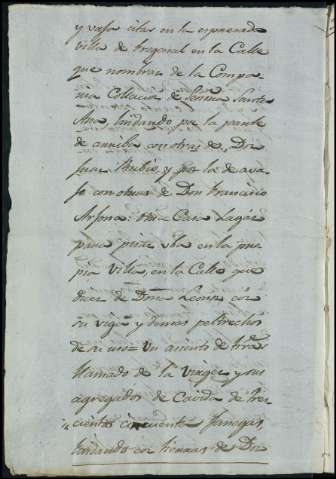 y vasa sitas en la expresada
villa de fregenal en la Calle
que nombran de la Compa
ñia Collacion de Señora Santa
Ana, lindando por la parte
de arriba con otras de Dn
Juan Rubio, y por la de ava
fo con otras de Don Francisco
Arjona: otra Casa Lagar
para pisar uba en la pro
pia Villa, en la Calle que
dicen de Dña Leonor con
su viga y demas peltrechos
de su uso: Un asiento de trras
llamado de la Vurger y sus
agregados de Cavida de tres
cientas cincuenta fanegas,
lindando con tierras de Dn